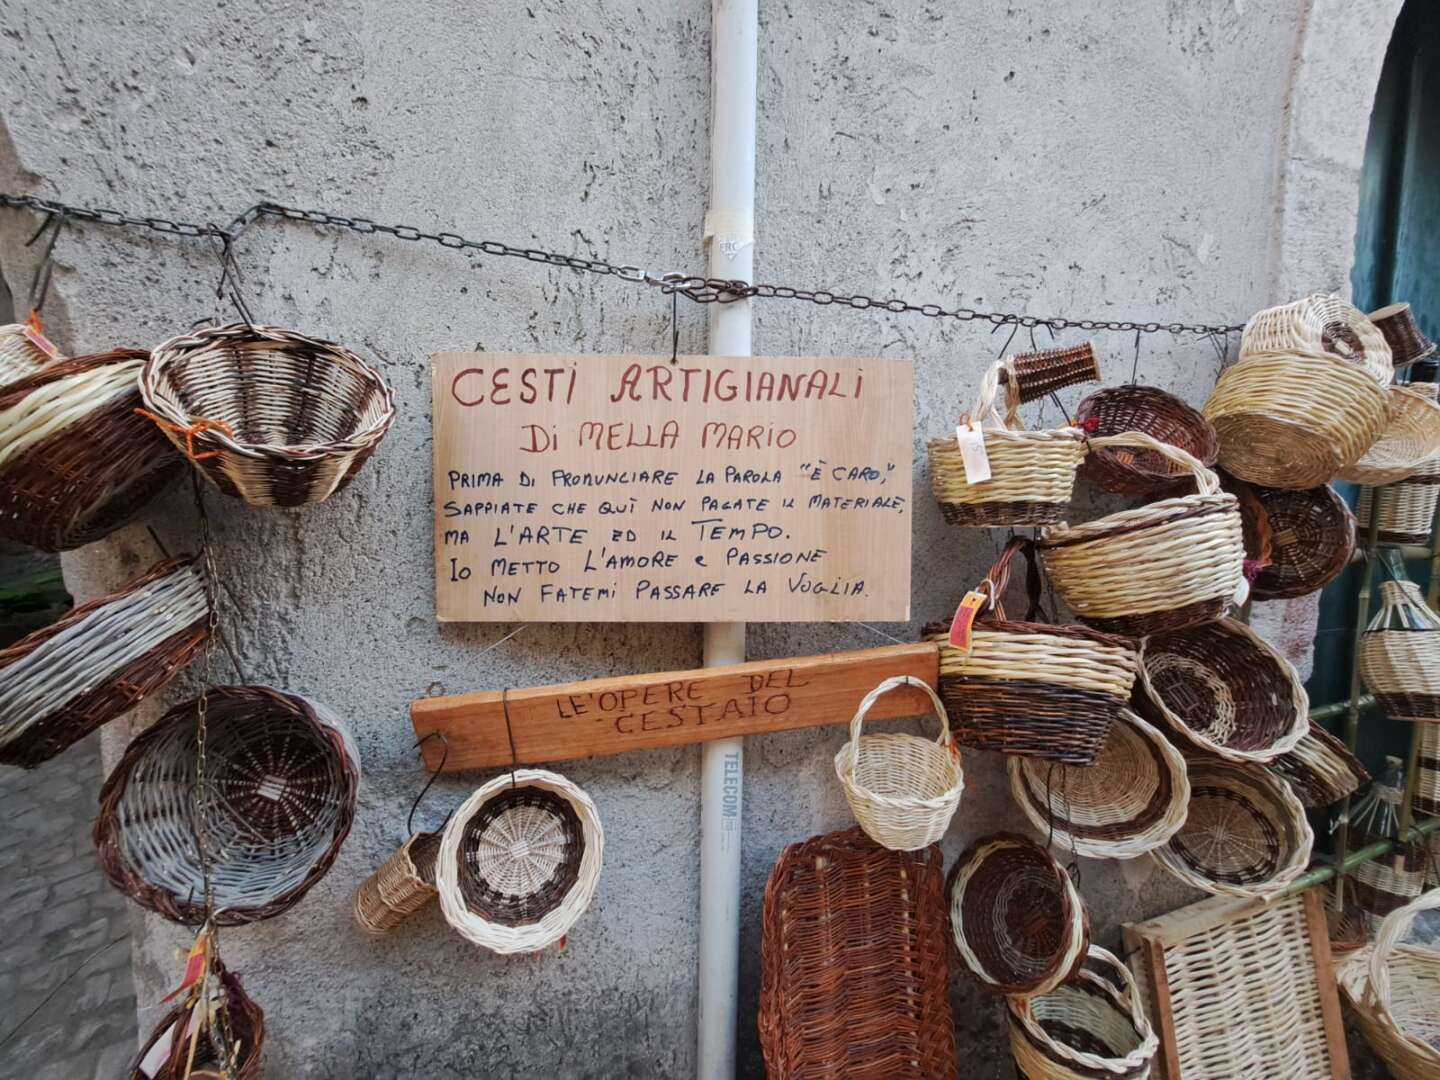 CESTI ARTIGIANALI
Di MELLA MARIO
PRIMA DI PRONUNCIARE LA PAROLA "È CARO,"
SAPPIATE CHE QUÌ NON PAGATE IL MATERIALE,
MA L'ARTE ED IL TEMPO.
Io METTO L'AMORE e PASSIONE
NON FATEMI PASSARE LA VOGLIA.
LE'OPERE DEL
CESTAIO
TELECOM